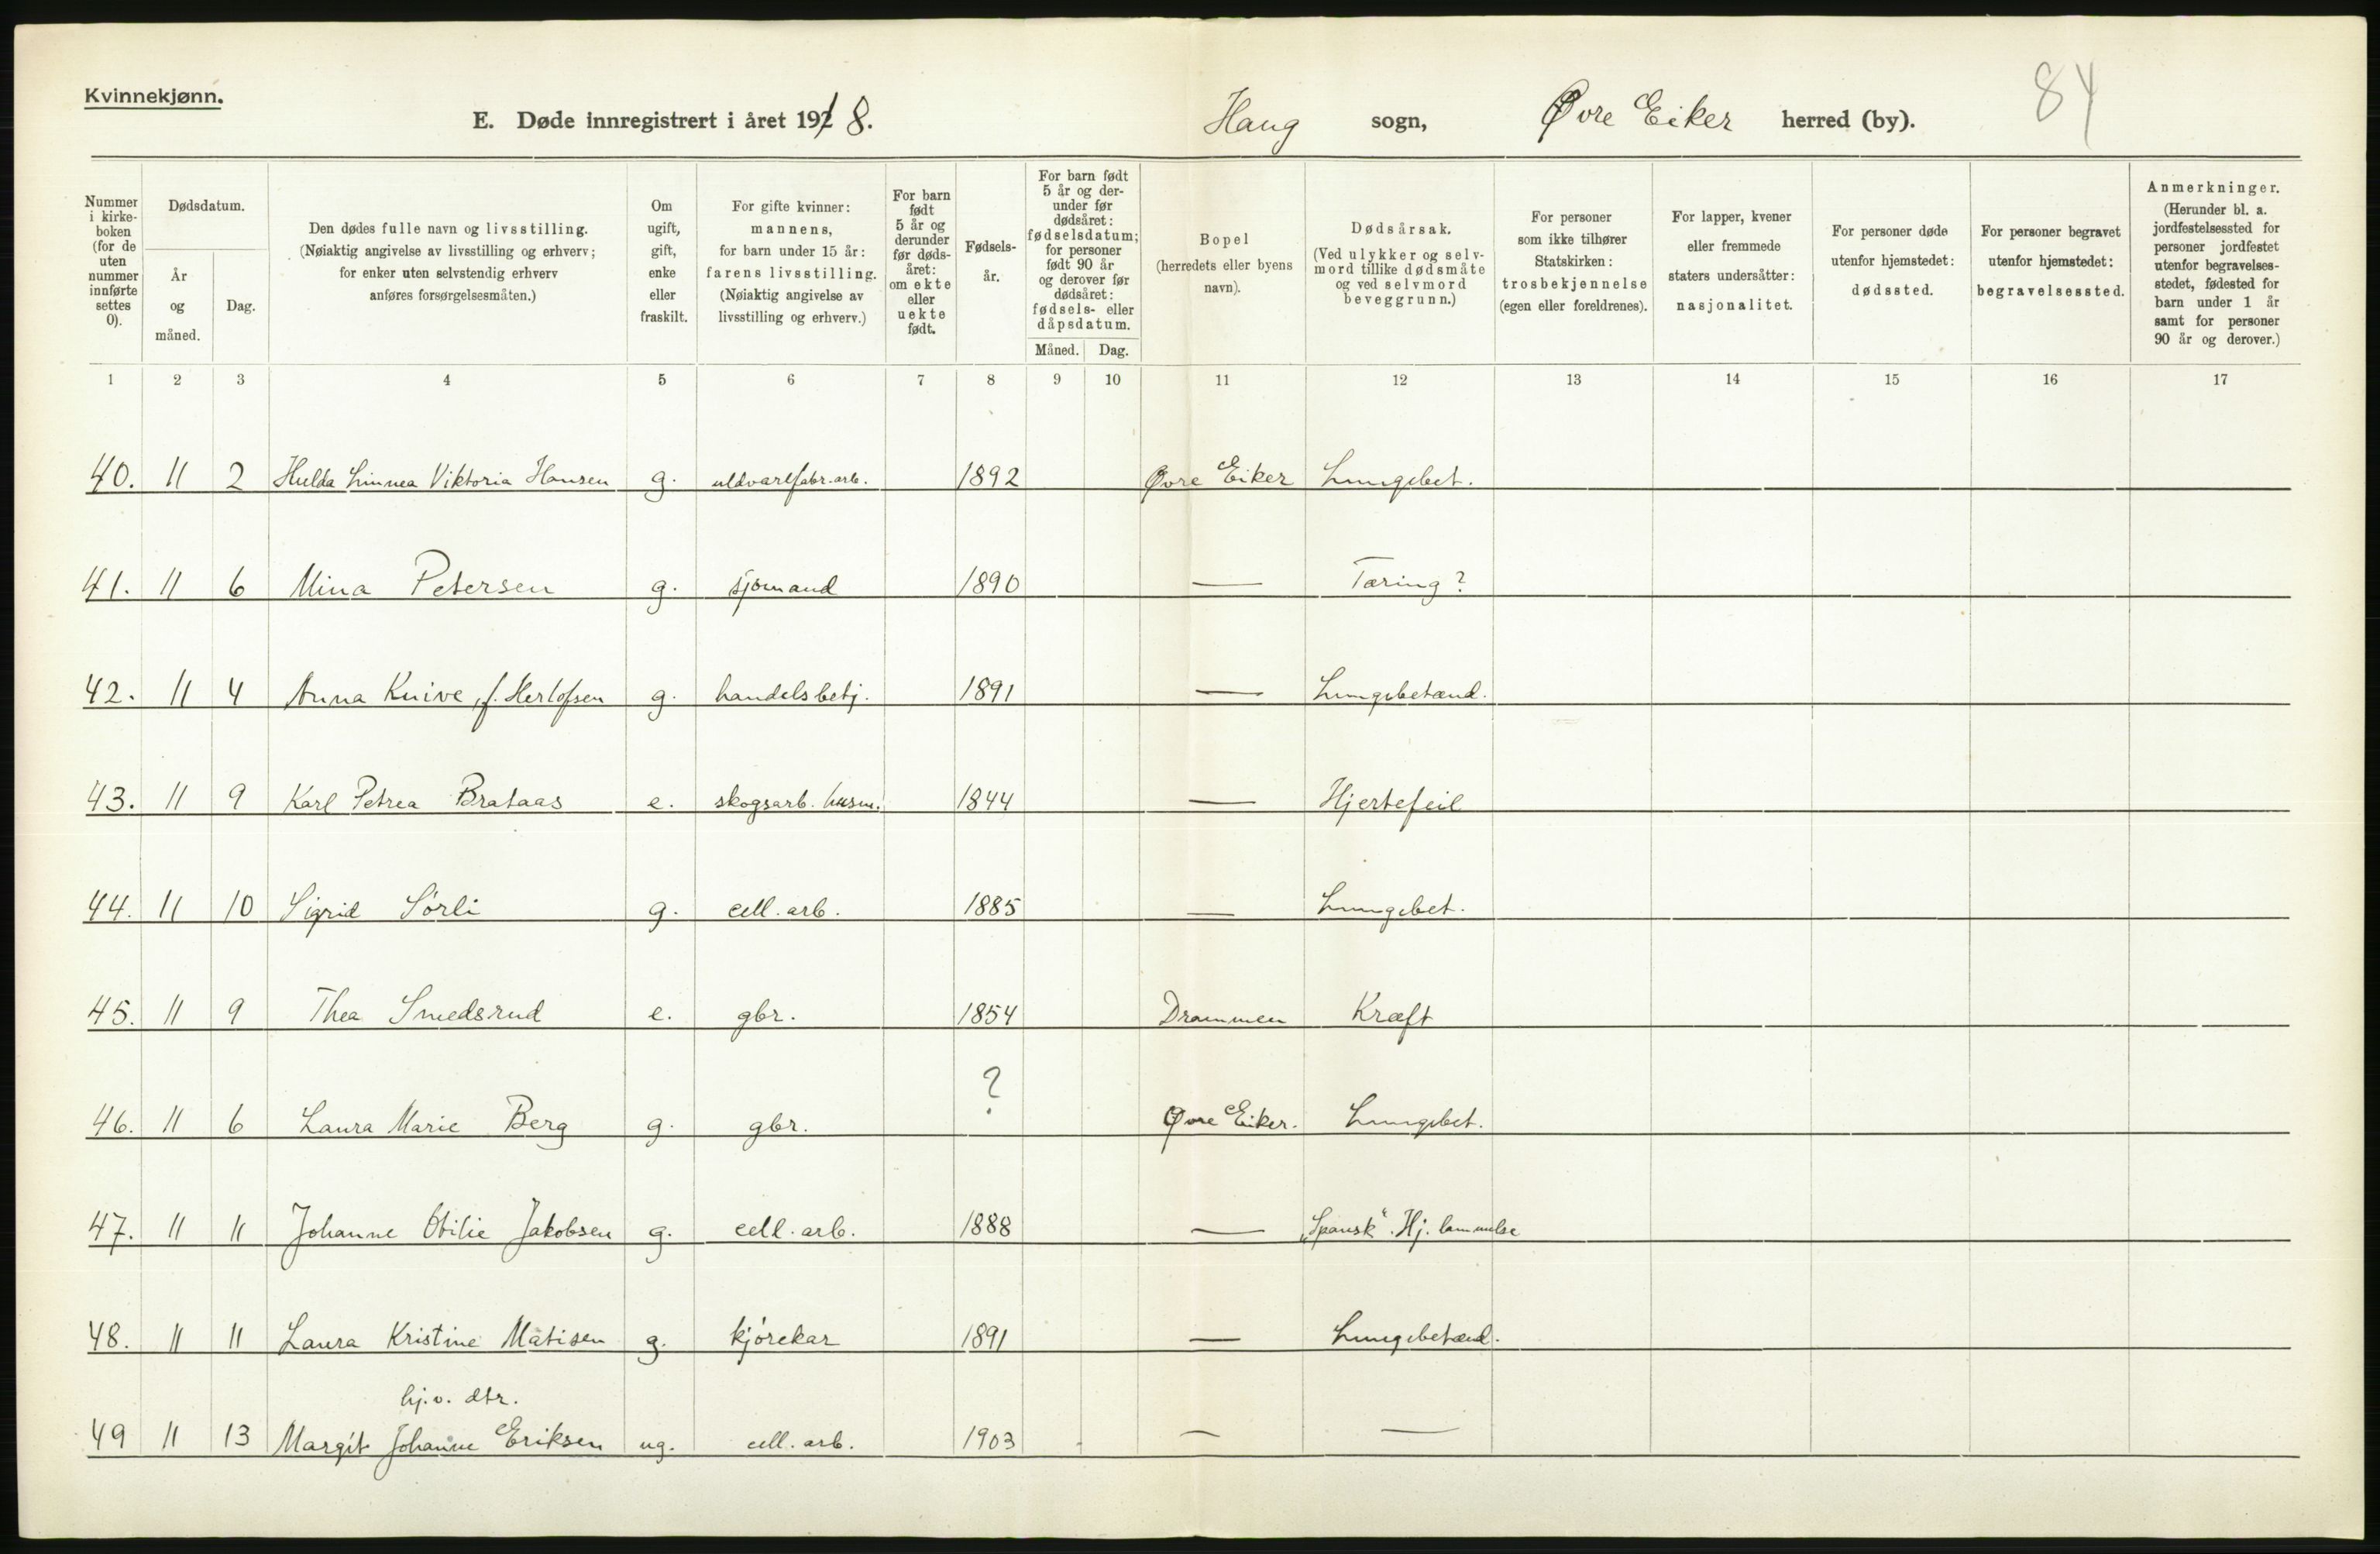 Kvinnekjønn.
E. Døde innregistrert i året 1918. Haug sogn, Øvre Eiker herred (by). 84
Nummer i kirkeboken (for de uten nummer innførte settes 0).
Dødsdatum.
År og måned.
Dag.
Den dødes fulle navn og livsstilling.
(Nøiaktig angivelse av livsstilling og erhverv;
for enker uten selvstendig erhverv
anføres forsørgelsesmåten.)
Om ugift, gift, enke eller fraskilt.
For gifte kvinner:
mannens,
for barn under 15 år:
farens livsstilling.
(Nøiaktig angivelse av
livsstilling og erhverv.)
For barn født 5 år og derunder før dødsåret: om ekte eller uekte født.
Fødselsår.
For barn født 5 år og derunder før dødsåret: fødselsdatum; for personer født 90 år og derover før dødsåret: fødsels- eller dåpsdatum.
Måned. Dag.
Bopel
(herredets eller byens
navn).
Dødsårsak.
(Ved ulykker og selvmord tillike dødsmåte og ved selvmord beveggrunn.)
For personer
som ikke tilhører
Statskirken:
trosbekjennelse
(egen eller foreldrenes).
For lapper, kvener
eller fremmede
staters undersåtter:
nasjonalitet.
For personer døde
utenfor hjemstedet:
dødssted.
For personer begravet
utenfor hjemstedet:
begravelsessted.
Anmerkninger.
(Herunder bl. a.
jordfestelsessted for
personer jordfestet
utenfor begravelses-
stedet, fødested for
barn under 1 år
samt for personer
90 år og derover.)
1 2 3 4 5 6 7 8 9 10 11 12 13 14 15 16 17
40. 11 2 Hulda Linnea Viktoria Hansen g. uldvarefabr.arb. 1892 Øvre Eiker Lungebet.
41. 11 6 Mina Petersen g. sjømand 1890 — Tæring?
42. 11 4 Anna Knive, f. Herlofsen g. handelsbetj. 1891 — Lungebetænd.
43. 11 9 Karl Petrea Brataas e. skogsarb. husm. 1844 — Hjertefeil
44. 11 10 Sigrid Sørli g. cell. arb. 1885 — Lungebet.
45. 11 9 Thea Smedsrud e. gbr. 1854 Drammen Kræft
46. 11 6 Laura Marie Berg g. gbr. ? Øvre Eiker. Lungebet.
47. 11 11 Johanne Otilie Jakobsen g. cell. arb. 1888 — „Spansk“. Hj. lammelse
48. 11 11 Laura Kristine Matisen g. kjørekar 1891 — Lungebetænd.
hj.v. dtr.
49 11 13 Margit Johanne Eriksen ug. cell. arb. 1903 — —